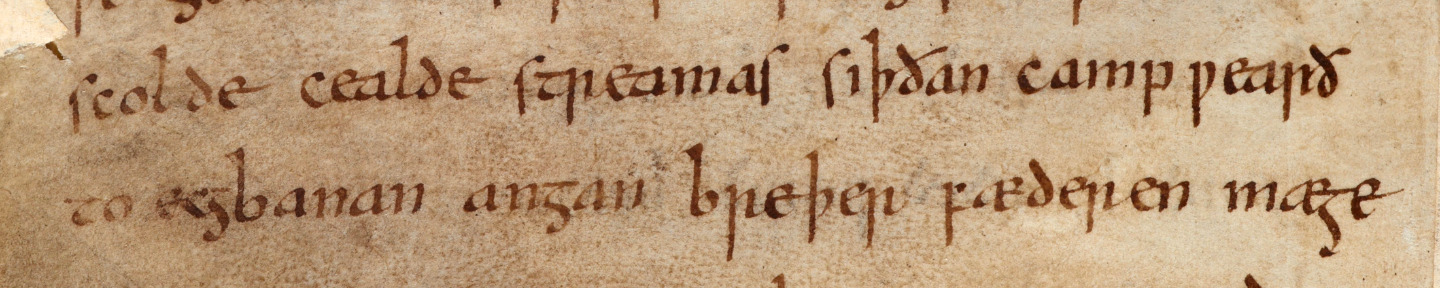 scolde cealde streamas siþðan camp ƿearð
to ecgbanan angan breþer fæderen mæge